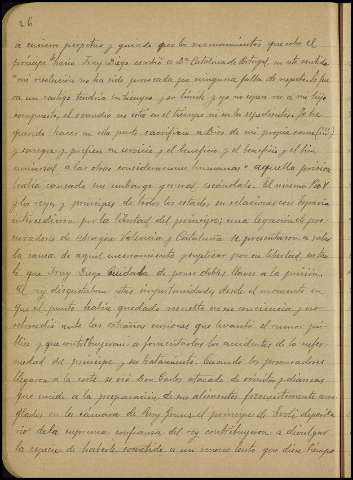 26
a encierro perpetuo y guardó por los mismos que
príncipe escribió a Dª Catalina de Portugal, en este sentido
"mi resolución no ha sido provocada por ninguna falta de respeto. Si fue
ra un castigo tendría su tiempo y su límite y yo no espero ver a mi hijo
el remedio no está en el tiempo ni en los expedientes. Yo he
querido hacer en esta parte sacrificio a Dios de mi propia carne (!!!)
y sangre y prefiero su servicio y el beneficio y el beneficio y el bien
universal a las otras consideraciones humanas" aquella prisión
había causado sin embargo general escándalo. El mismo Pío V
y los reyes y príncipes de todos los estados en relaciones con España
intercedieron por la libertad del príncipe; una legación de pro-
curadores de Aragón Valencia y Cataluña se presentaron a saber
la causa de aquel encerramiento y suplicar por su libertad, en tan
to que Ruy Diego cuidaba de poner dobles llaves a la prisión.
Al rey disgustaban estas importunidades desde el momento en
que el punto había quedado resuelto en su conciencia y no
retrocedió ante las extrañas censuras que levantó el rumor pú-
blico y que contribuyeron a fomentar los accidentes de la enfer-
medad del príncipe y su tratamiento. Cuando los procuradores
llegaron a la corte se vio Don Carlos atacado de vómitos y diarreas
que unido a la preparación de sus alimentos frecuentemente arre
glados en la cámara de Ruy Gómez el príncipe de Évoli deposita
rio de la suprema confianza del rey contribuyeron a divulgar
la especie de haberle sometido a un veneno lento que diese tiempo